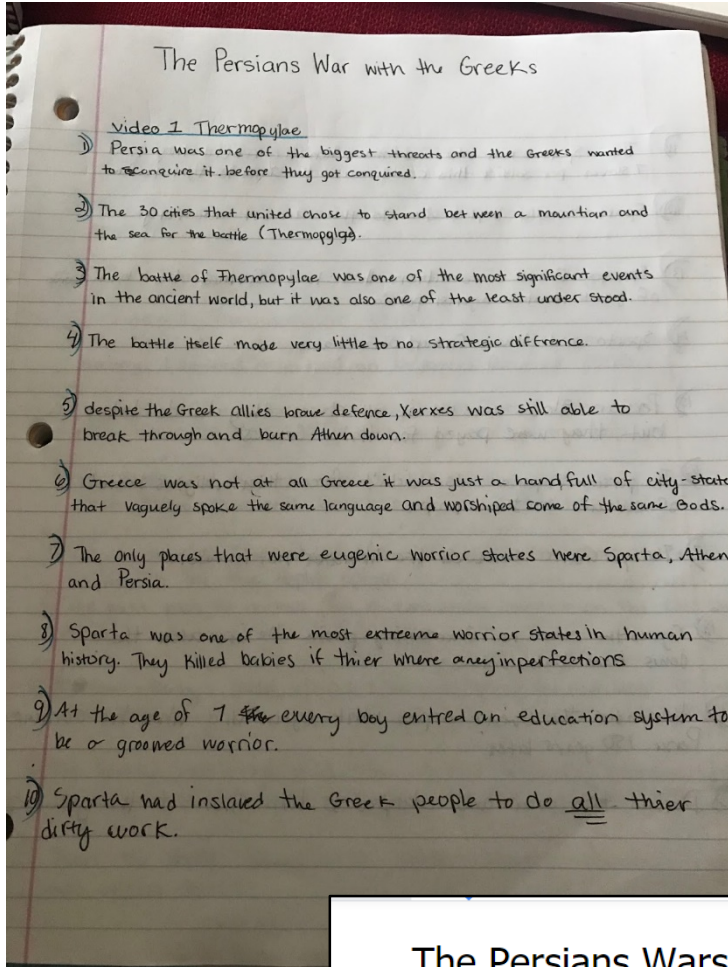 The Persians War with the Greeks
video 1 Thermopylae
1) Persia was one of the biggest threats and the Greeks wanted
to conquire it. before they got conquired.
2) The 30 cities that united chose to stand between a mountian and
the sea for the battle (Thermopylgs).
3) The battle of Thermopylae was one of the most significant events
in the ancient world, but it was also one of the least under stood.
4) The battle itself made very little to no strategic diffrence.
5) despite the Greek allies brave defence, Xerxes was still able to
break through and burn Athen down.
6) Greece was not at all Greece it was just a hand full of city-state
that vaguely spoke the same language and worshiped some of the same Gods.
7) The only places that were eugenic worrior states were Sparta, Athen
and Persia.
8) Sparta was one of the most extreeme worrior states in human
history. They killed babies if thier where aney inperfections
9) At the age of 7 every boy entred an education system to
be a groomed worrior.
10) Sparta had inslaved the Greek people to do all thier
dirty work.
The Persians Wars